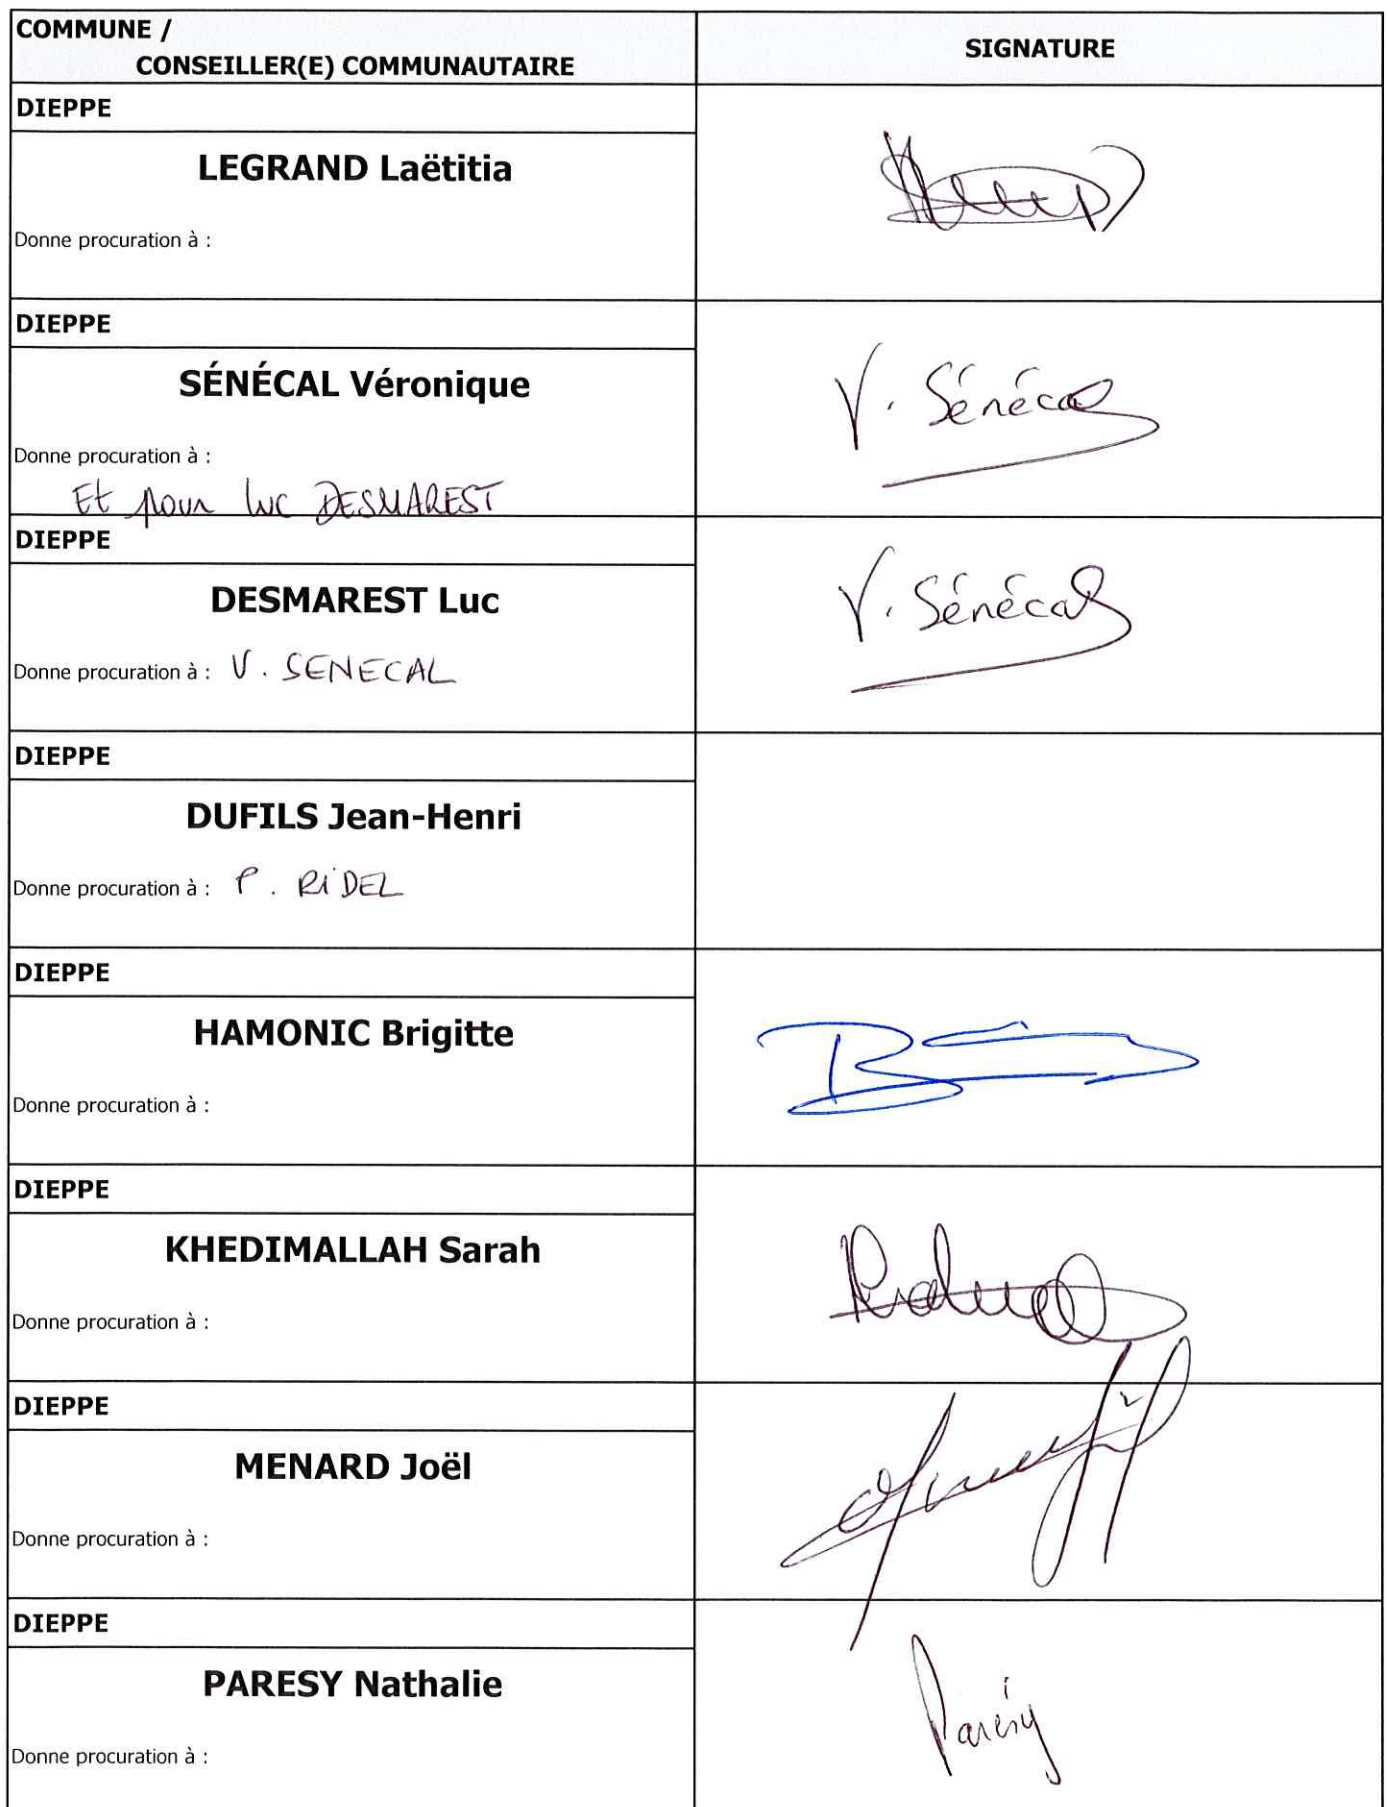 COMMUNE /
CONSEILLER(E) COMMUNAUTAIRE
SIGNATURE
DIEPPE
LEGRAND Laëtitia
Donne procuration à :
DIEPPE
SÉNÉCAL Véronique
V. Sénécal
Donne procuration à :
Et pour Luc DESMAREST
DIEPPE
DESMAREST Luc
V. Sénécal
Donne procuration à : V. SENECAL
DIEPPE
DUFILS Jean-Henri
Donne procuration à : P. RiDEL
DIEPPE
HAMONIC Brigitte
Donne procuration à :
DIEPPE
KHEDIMALLAH Sarah
Donne procuration à :
DIEPPE
MENARD Joël
Donne procuration à :
DIEPPE
PARESY Nathalie
Paresy
Donne procuration à :